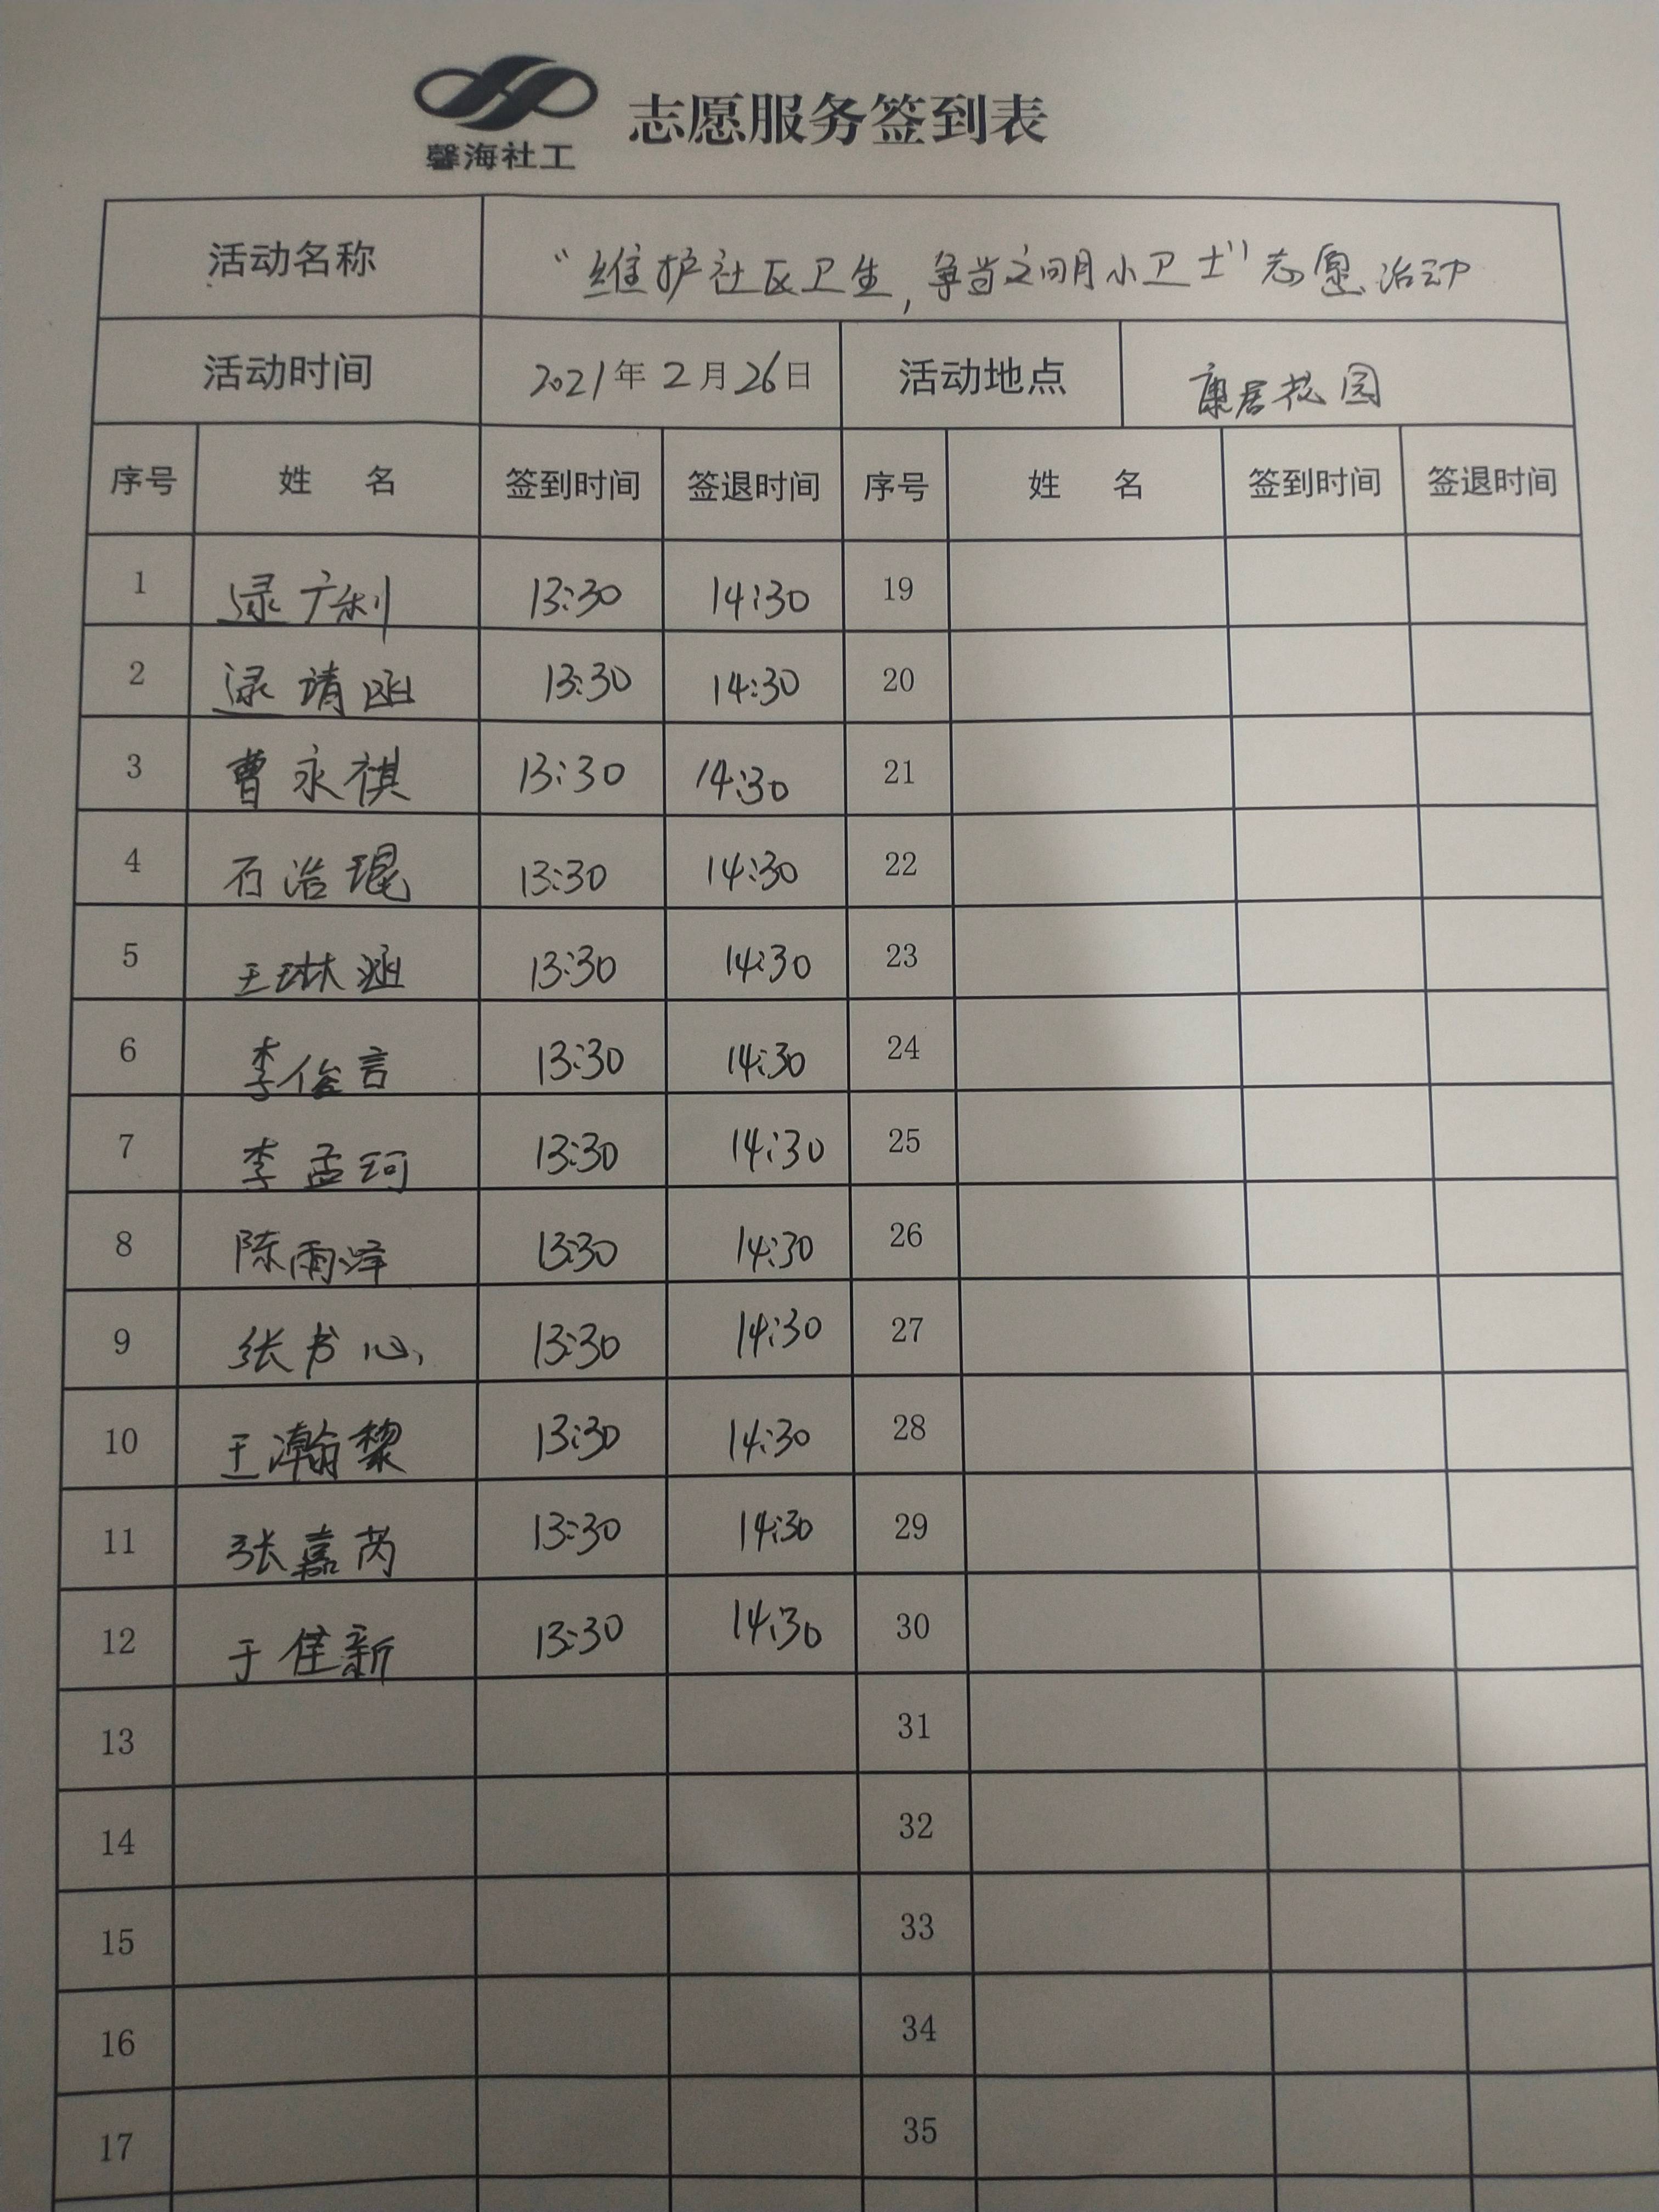 馨海社工
志愿服务签到表
活动名称 “维护社区卫生,争当文明小卫士”志愿活动
活动时间 2021年2月26日 活动地点 康居花园
序号 姓 名 签到时间 签退时间 序号 姓 名 签到时间 签退时间
1 逯广利 13:30 14:30 19
2 逯靖函 13:30 14:30 20
3 曹永祺 13:30 14:30 21
4 石浩琨 13:30 14:30 22
5 王琳涵 13:30 14:30 23
6 李俊言 13:30 14:30 24
7 李孟珂 13:30 14:30 25
8 陈雨泽 13:30 14:30 26
9 张书心 13:30 14:30 27
10 王瀚黎 13:30 14:30 28
11 张嘉芮 13:30 14:30 29
12 于佳新 13:30 14:30 30
13 31
14 32
15 33
16 34
17 35